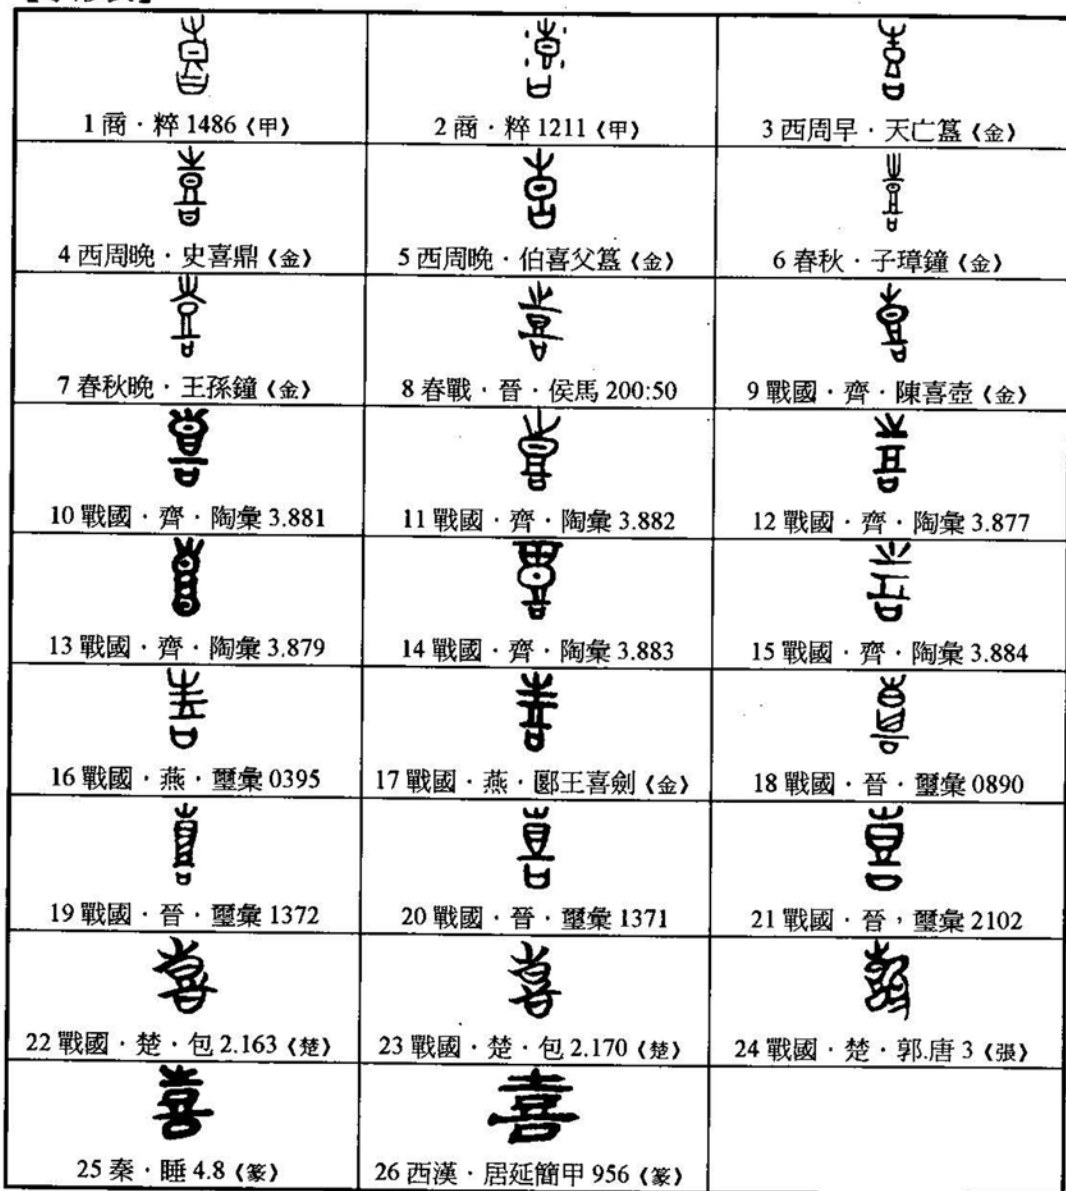 1 商．粹 1486《甲》
2 商．粹 1211《甲》
3 西周早．天亡簋《金》
4 西周晚．史喜鼎《金》
5 西周晚．伯喜父簋《金》
6 春秋．子璋鐘《金》
7 春秋晚．王孫鐘《金》
8 春戰．晉．侯馬 200:50
9 戰國．齊．陳喜壺《金》
10 戰國．齊．陶彙 3.881
11 戰國．齊．陶彙 3.882
12 戰國．齊．陶彙 3.877
13 戰國．齊．陶彙 3.879
14 戰國．齊．陶彙 3.883
15 戰國．齊．陶彙 3.884
16 戰國．燕．璽彙 0395
17 戰國．燕．郾王喜劍《金》
18 戰國．晉．璽彙 0890
19 戰國．晉．璽彙 1372
20 戰國．晉．璽彙 1371
21 戰國．晉，璽彙 2102
22 戰國．楚．包 2.163《楚》
23 戰國．楚．包 2.170《楚》
24 戰國．楚．郭.唐 3《張》
25 秦．睡 4.8《篆》
喜
26 西漢．居延簡甲 956《篆》